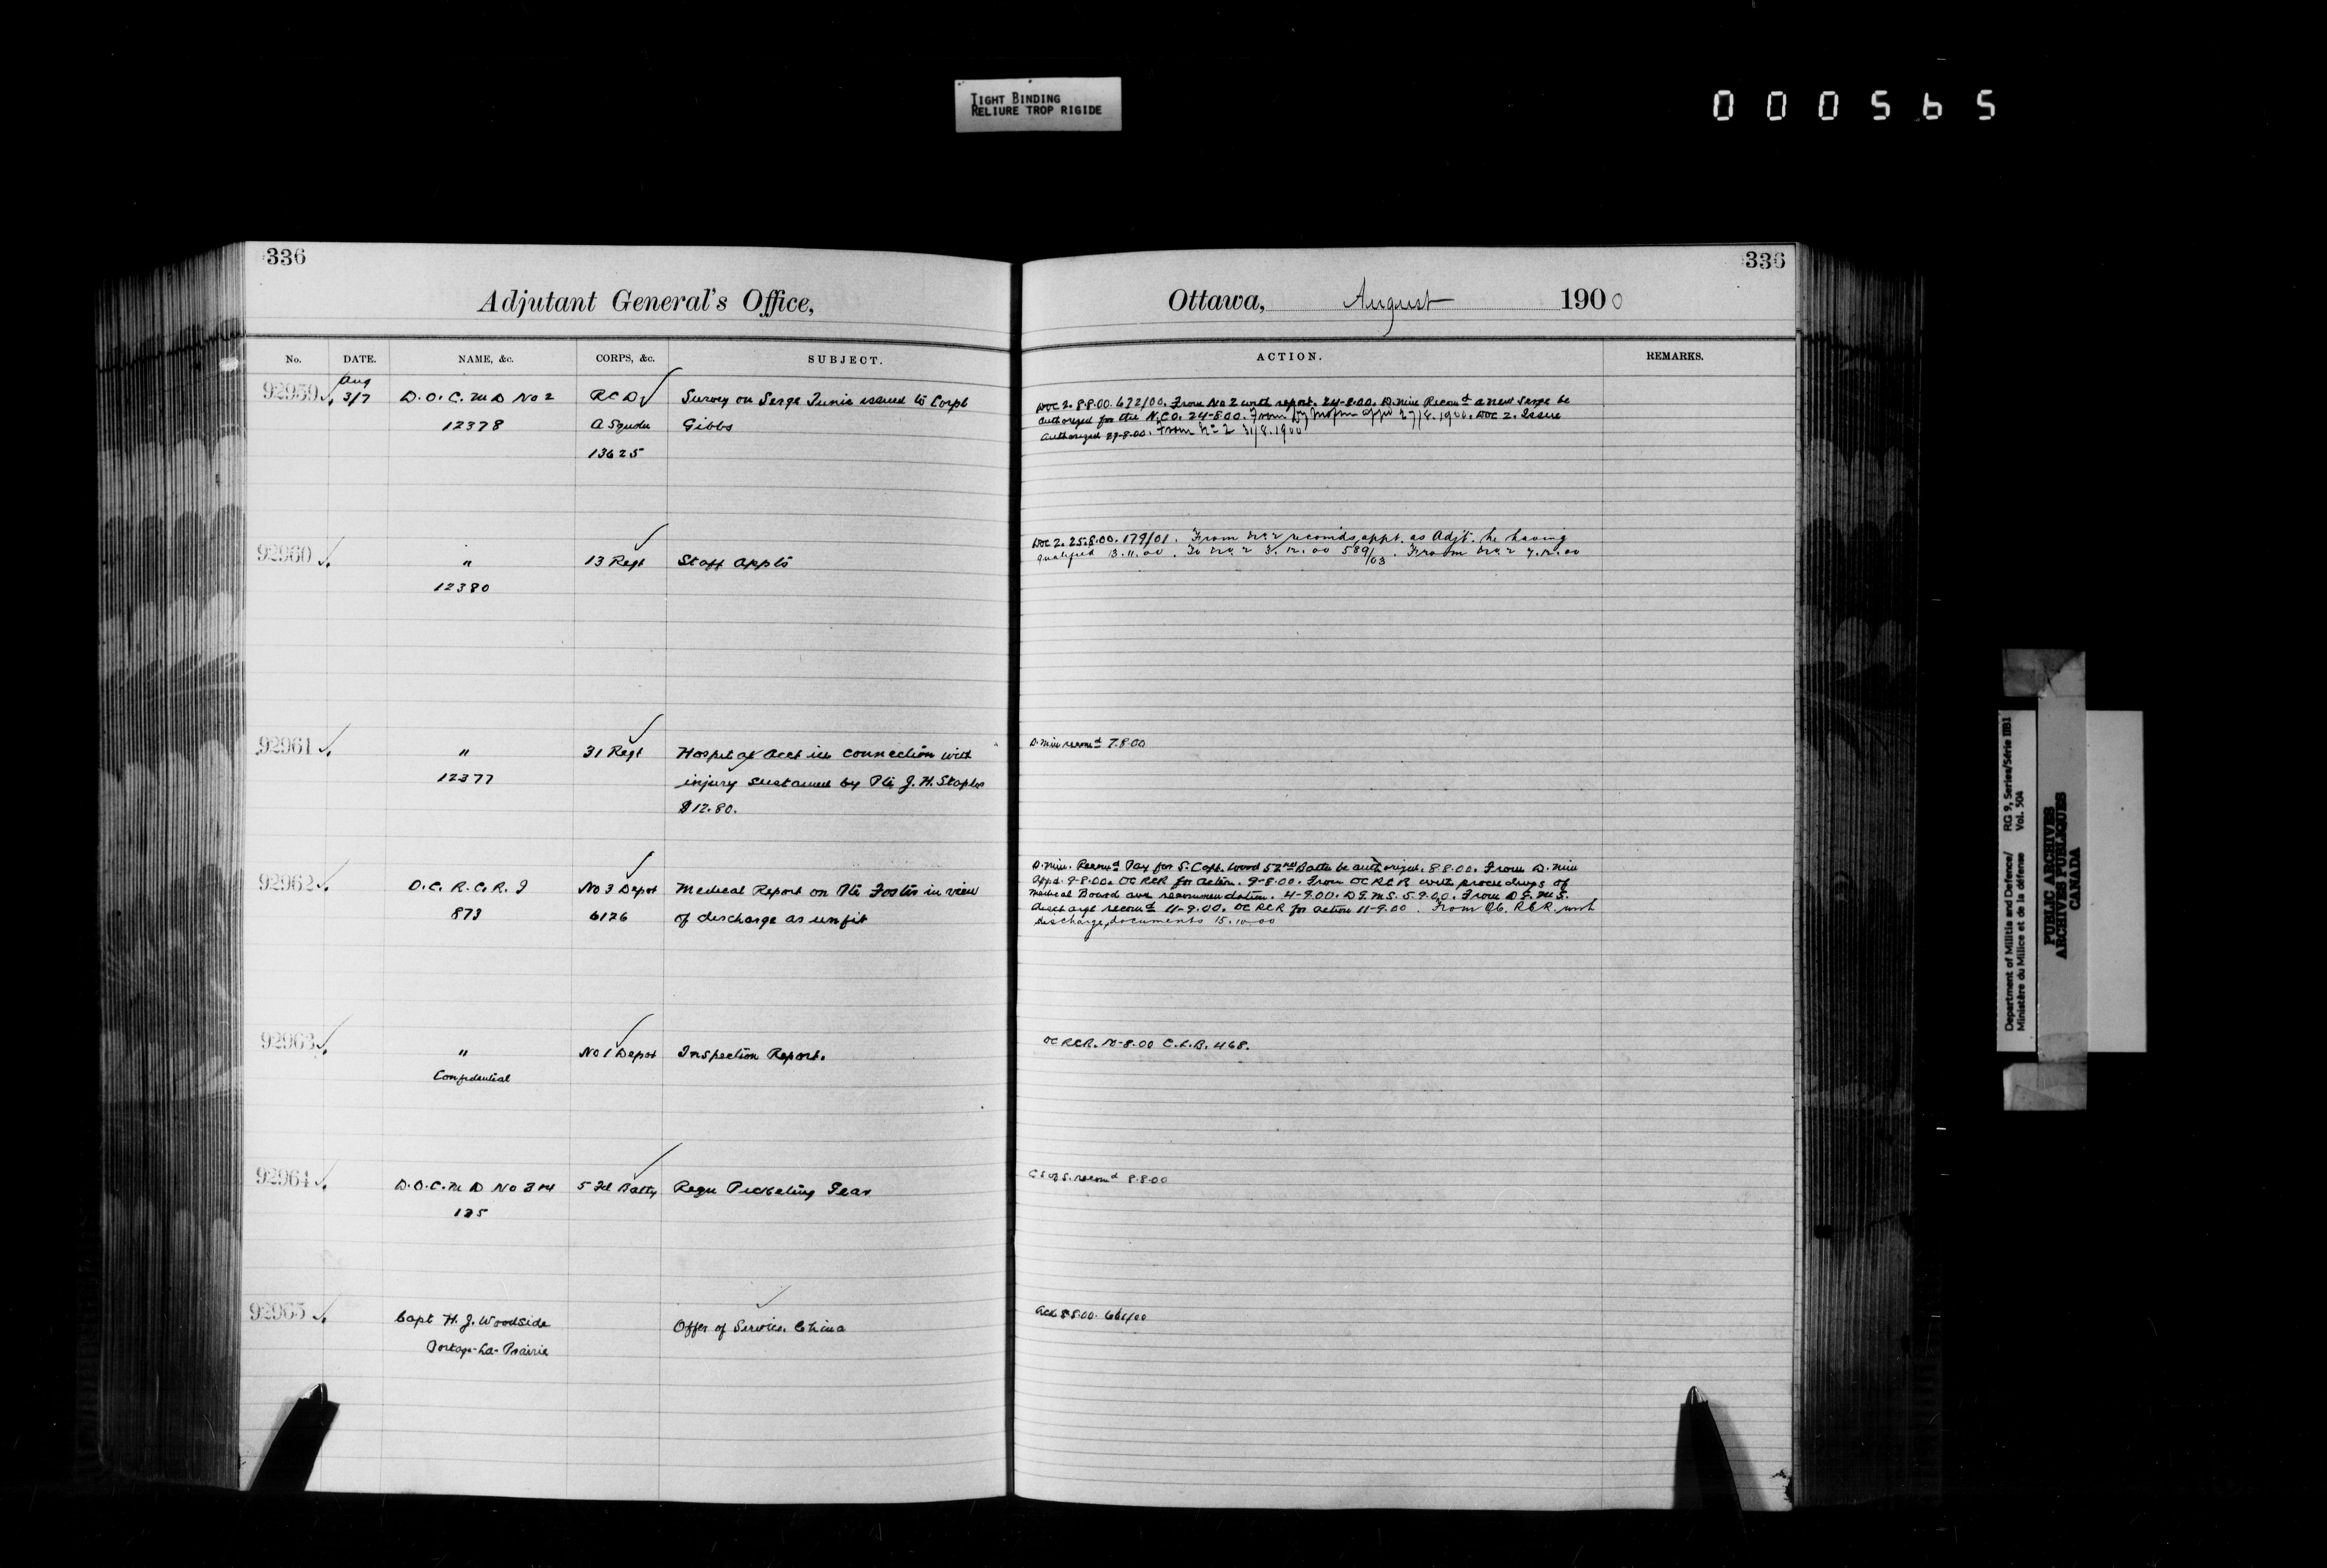 TIGHT BINDING
RELIURE TROP RIGIDE
000565
336
Adjutant General's Office,
No. DATE. NAME, &c. CORPS, &c. SUBJECT.
92959 Aug 3/7 D.O.C. M D No 2 R C D Survey on Serge Tunic issued to Corpl
12378 A Squdn Gibbs
13625
92960 " 13 Regt Staff appts
12380
92961 " 31 Regt Hospital acct in connection with
12377 injury sustained by Pte J. H. Staples
$12.80.
92962 O.C. R.C.R. I No 3 Depot Medical Report on Pte Foster in view
873 6126 of discharge as unfit
92963 " No 1 Depot Inspection Report.
Confidential
92964 D.O.C. M D No 3 & 4 5 Fd Batty Requ Picketing Gear
125
92965 Capt H. J. Woodside Offer of Service. China
Portage-La-Prairie
336
Ottawa, August 1900
ACTION. REMARKS.
DOC 2. 8.8.00. 672/00. From No 2 with report. 24-8.00. D. Min Recomd a new Serge be
authorized for the N.C.O. 24-8.00. From 27/8.1900. DOC 2. Issue
authorized 29-8.00. From No 2 31/8.1900
DOC 2. 25.8.00. 179/01. From No. 2 recomds appt. as Adjt. he having
qualified 13.11.00. To No. 2 3.12.00 589/03. From No. 2 7.12.00
D. Min recomd 7.8.00
D. Min. Recomd Pay for S. Capt. Wood 52nd Battn be authorized. 8.8.00. From D. Min
Appd. 9-8.00. OC RCR for action. 9-8.00. From OC RCR with proceedings of
Medical Board and recommendation. 4-9.00. D G.M.S. 5.9.00. From D G.M.S.
discharge recomd 11-9.00. OC RCR for action 11-9.00. From OC. RCR. with
discharge documents 15.10.00
OC RCR. 10-8.00 C.L.B. 468.
C S of S. recomd 8.8.00
Ack 8.8.00. 661/00
Department of Militia and Defence/ RG 9, Series/Série IIB1
Ministère du Milice et de la défense Vol. 504
PUBLIC ARCHIVES
ARCHIVES PUBLIQUES
CANADA